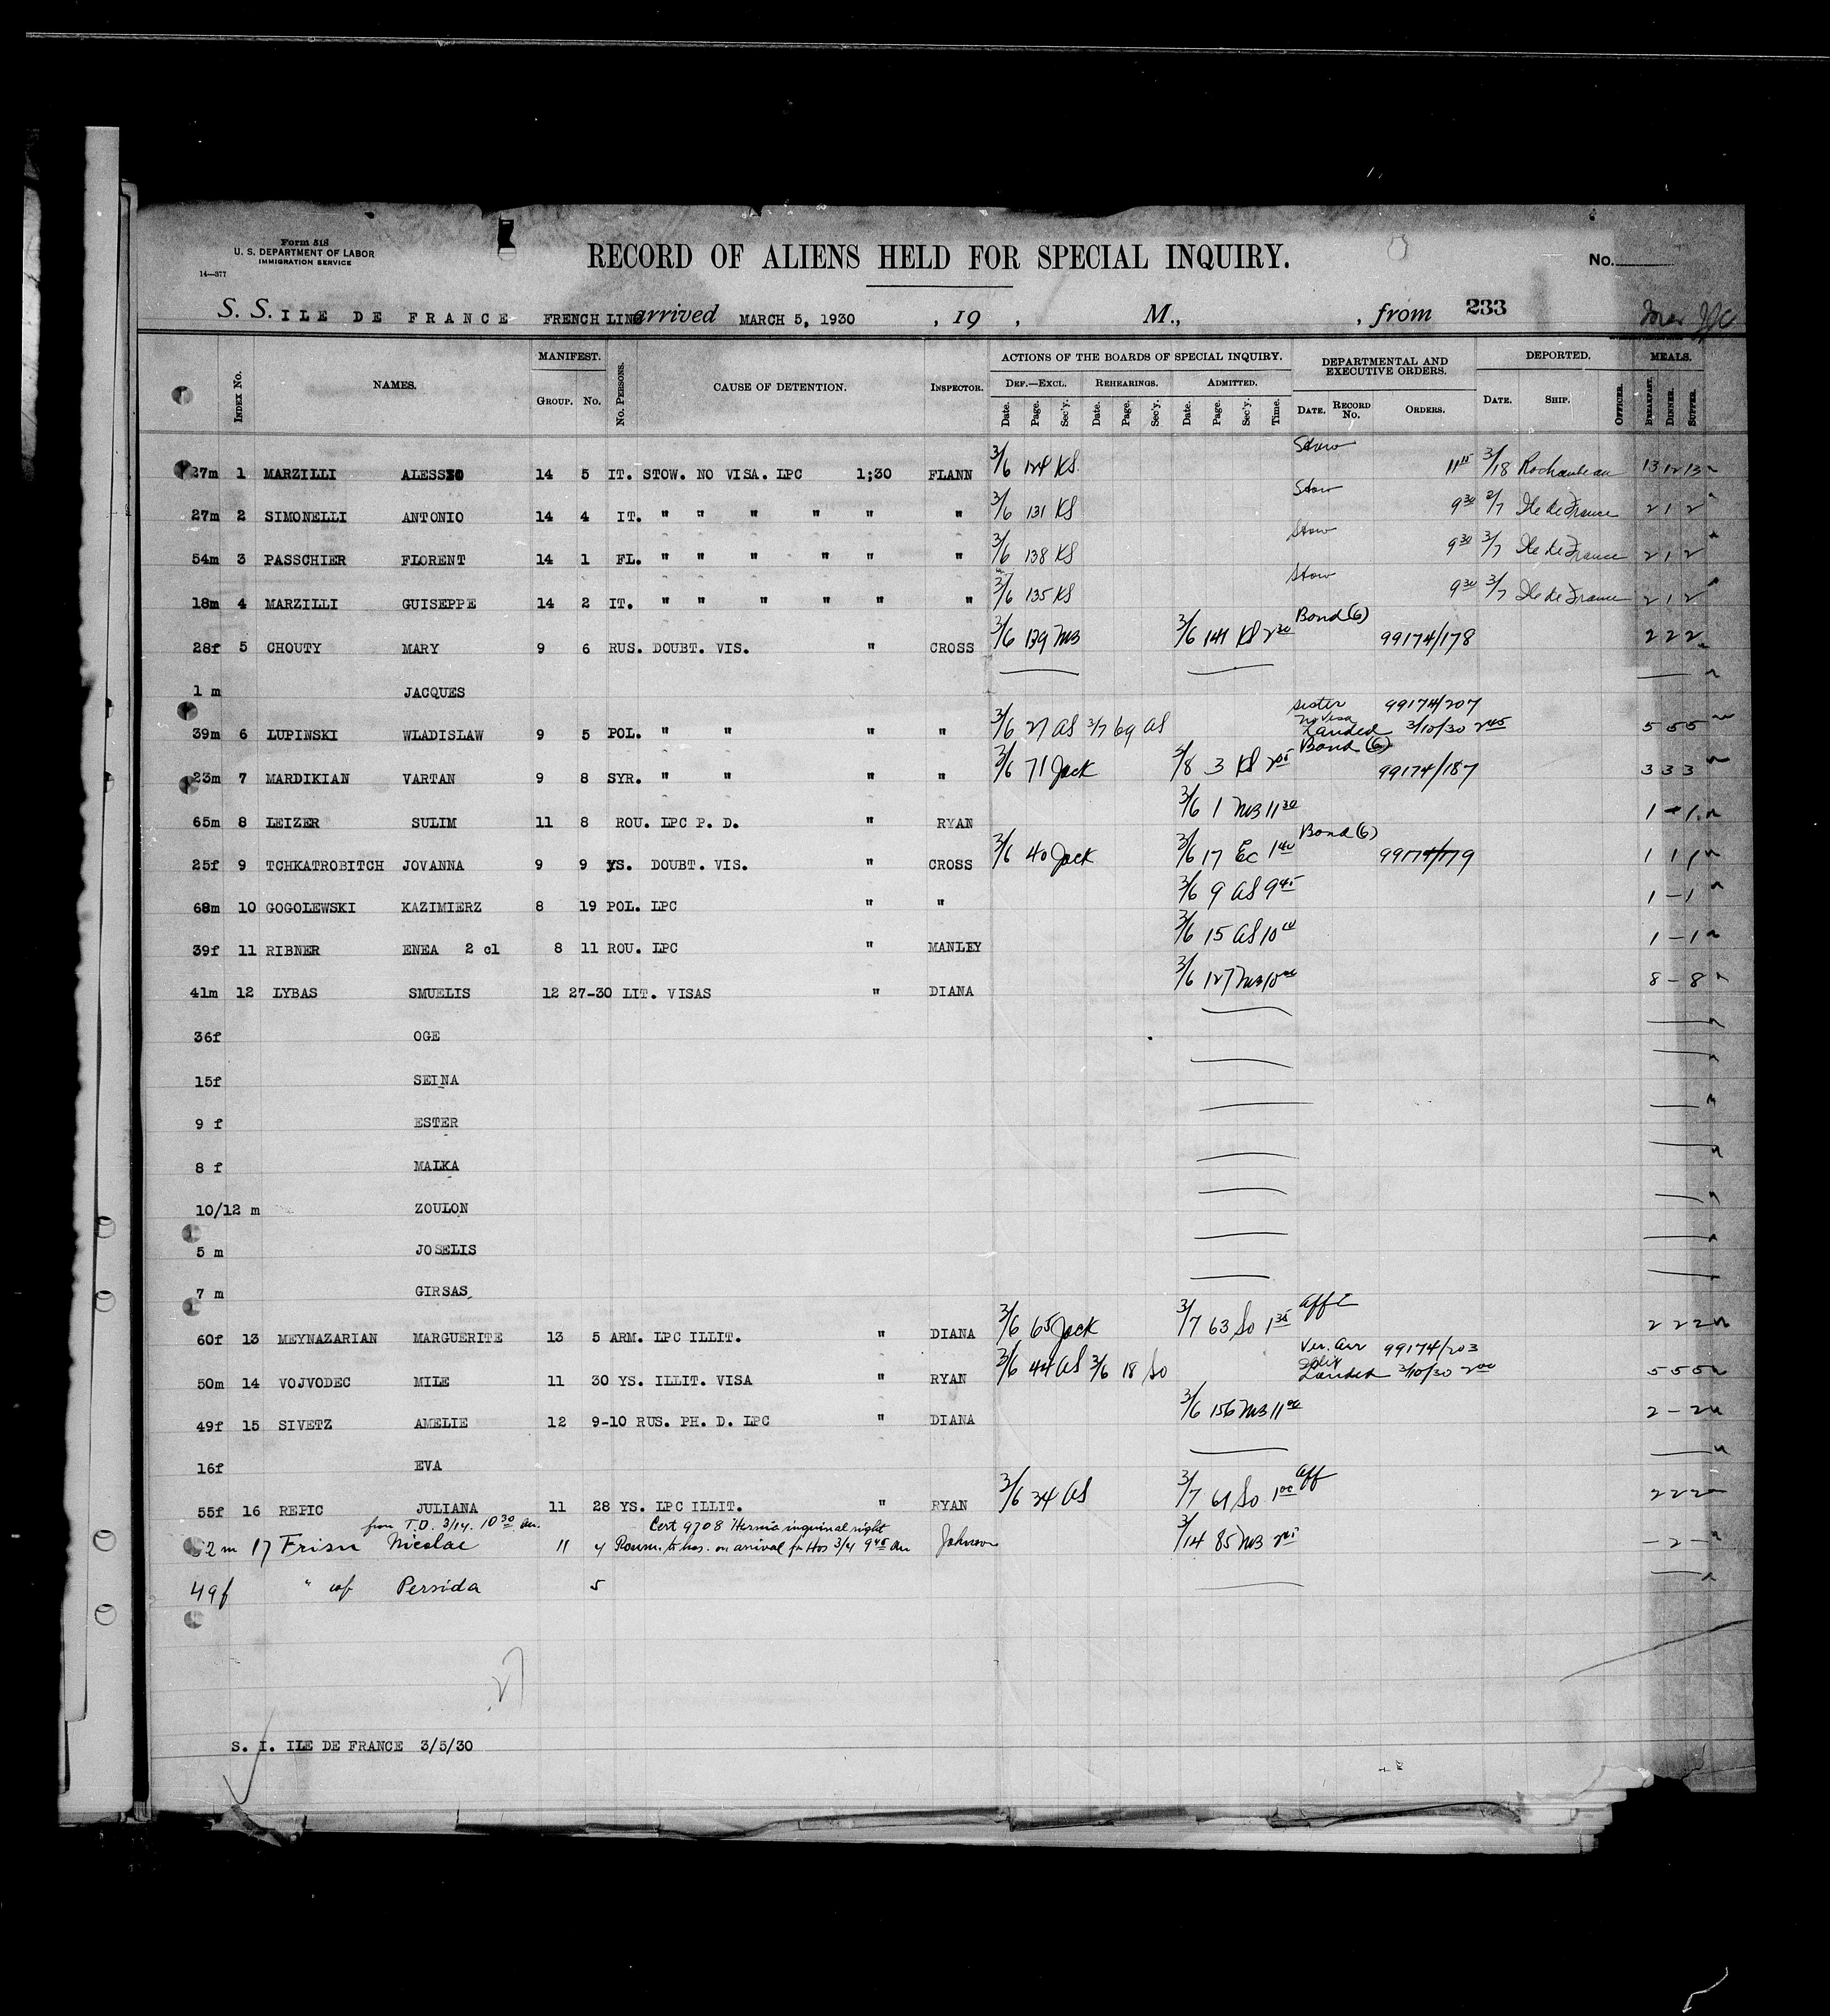 Form 518
U. S. DEPARTMENT OF LABOR
IMMIGRATION SERVICE
14—377
RECORD OF ALIENS HELD FOR SPECIAL INQUIRY.
No.
S. S. ILE DE FRANCE FRENCH LINE arrived MARCH 5, 1930 , 19 , M., , from 233
INDEX No. NAMES. MANIFEST. GROUP. No. No. PERSONS. CAUSE OF DETENTION. INSPECTOR. ACTIONS OF THE BOARDS OF SPECIAL INQUIRY. DEPARTMENTAL AND EXECUTIVE ORDERS. DEPORTED. MEALS.
DEF.—EXCL. REHEARINGS. ADMITTED.
Date. Page. Sec'y. Date. Page. Sec'y. Date. Page. Sec'y. Time. DATE. RECORD No. ORDERS. DATE. SHIP. OFFICER. BREAKFAST. DINNER. SUPPER.
27m 1 MARZILLI ALESSIO 14 5 IT. STOW. NO VISA. LPC 1;30 FLANN 3/6 124 KS Stow 11 15 3/18 Rochambeau 13 12 13
27m 2 SIMONELLI ANTONIO 14 4 IT. " " " " " " 3/6 131 KS Stow 9 30 3/7 Ile de France 2 1 2
54m 3 PASSCHIER FLORENT 14 1 FL. " " " " " " 3/6 138 KS Stow 9 30 3/7 Ile de France 2 1 2
18m 4 MARZILLI GUISEPPE 14 2 IT. " " " " " " 3/6 135 KS Stow 9 30 3/7 Ile de France 2 1 2
28f 5 CHOUTY MARY 9 6 RUS. DOUBT. VIS. " CROSS 3/6 139 MB 3/6 141 KS 2 30 Bond (6) 99174/178 2 2 2
1 m JACQUES
39m 6 LUPINSKI WLADISLAW 9 5 POL. " " " " 3/6 27 AS 3/7 69 AS sister 99174/207 No Visa Landed 3/10/30 2 45 5 5 5
23m 7 MARDIKIAN VARTAN 9 8 SYR. " " " " 3/6 71 Jack 3/8 3 KS 2 05 Bond (6) 99174/187 3 3 3
65m 8 LEIZER SULIM 11 8 ROU. LPC P. D. " RYAN 3/6 1 MB 11 30 1 - 1
25f 9 TCHKATROBITCH JOVANNA 9 9 YS. DOUBT. VIS. " CROSS 3/6 40 Jack 3/6 17 EC 1 40 Bond (6) 99174/179 1 1 1
68m 10 GOGOLEWSKI KAZIMIERZ 8 19 POL. LPC " " 3/6 9 AS 9 45 1 - 1
39f 11 RIBNER ENEA 2 cl 8 11 ROU. LPC " MANLEY 3/6 15 AS 10 10 1 - 1
41m 12 LYBAS SMUELIS 12 27-30 LIT. VISAS " DIANA 3/6 127 MB 10 00 8 - 8
36f OGE
15f SEINA
9 f ESTER
8 f MALKA
10/12 m ZOULON
5 m JOSELIS
7 m GIRSAS
60f 13 MEYNAZARIAN MARGUERITE 13 5 ARM. LPC ILLIT. " DIANA 3/6 65 Jack 3/7 63 So 1 35 aff 2 2 2
50m 14 VOJVODEC MILE 11 30 YS. ILLIT. VISA " RYAN 3/6 44 AS 3/6 18 So Ver. arr 99174/203 Landed 3/10/30 2 00 5 5 5
49f 15 SIVETZ AMELIE 12 9-10 RUS. PH. D. LPC " DIANA 3/6 156 MB 11 00 2 - 2
16f EVA
55f 16 REPIC JULIANA 11 28 YS. LPC ILLIT. " RYAN 3/6 34 AS 3/7 61 So 1 00 aff 2 2 2
from T.D. 3/14. 10 30 am. Cert 9708 Hernia inguinal right
52m 17 Frisn Nicolae 11 4 Roum. to hos. on arrival fr Hos 3/14 9 45 am Johnson 3/14 85 MB 2 45 - 2 -
49f " wf Persida 5
27
S. I. ILE DE FRANCE 3/5/30